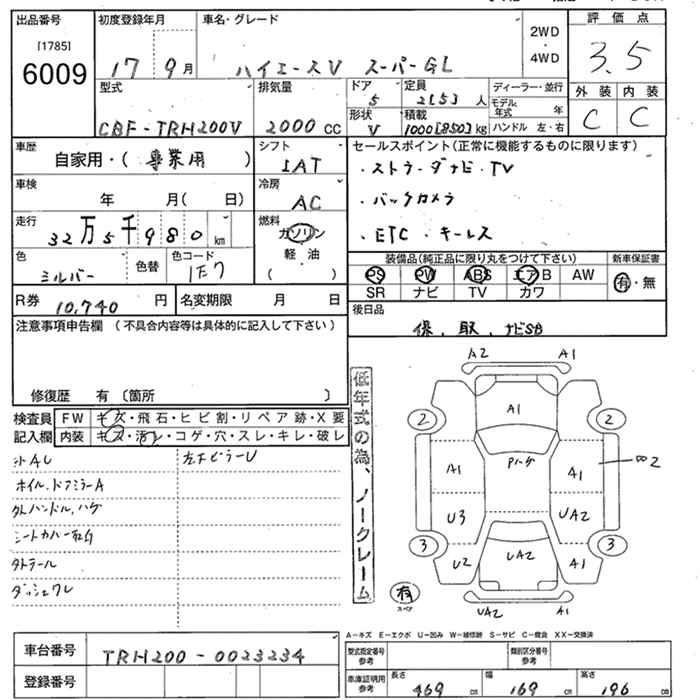 出品番号
[1785]
6009
初度登録年月
17 9月
車名・グレード
ハイエースV スーパーGL
2WD
・
4WD
評価点
3.5
外装 内装
C C
型式
CBF-TRH200V
排気量
2000 CC
ドア
5
定員
2[5]人
形状
V
積載
1000[850]kg
ディーラー・並行
モデル年式 年
ハンドル 左・右
車歴
自家用・( 事業用 )
シフト
IAT
車検
年 月( 日)
冷房
AC
走行
32万5千980km
燃料
ガソリン
軽・油
( )
色
シルバー
色替
色コード
1E7
R券 10,740 円
名変期限 月 日
セールスポイント(正常に機能するものに限ります)
・ストラーダナビ・TV
・バックカメラ
・ETC・キーレス
装備品(純正品に限り丸をつけて下さい)
PS PW ABS エアB AW
SR ナビ TV カワ
新車保証書
有・無
後日品
保、取、ナビSB
注意事項申告欄(不具合内容等は具体的に記入して下さい)
修復歴 有〔箇所 〕
検査員記入欄
FW キズ・飛石・ヒビ割・リペア跡・X要
内装 キズ・汚レ・コゲ・穴・スレ・キレ・破レ
ホイル、ドアミラーA
外ハンドル、ハゲ
シートカバー
左下ピラーU
低年式の為、ノークレーム
A2 A1
A1
2 2
A1 A1
2
U3 UA2
3 3
U2 UA2 A1
有
スペア
UA2 A1
A-キズ E-エクボ U-凹み W-補修跡 S-サビ C-腐食 XX-交換済
車台番号 TRH200-0023234
登録番号
型式指定番号
参考
類別区分番号
参考
車庫証明用
参考
長さ 469 cm
幅 169 cm
高さ 196 cm